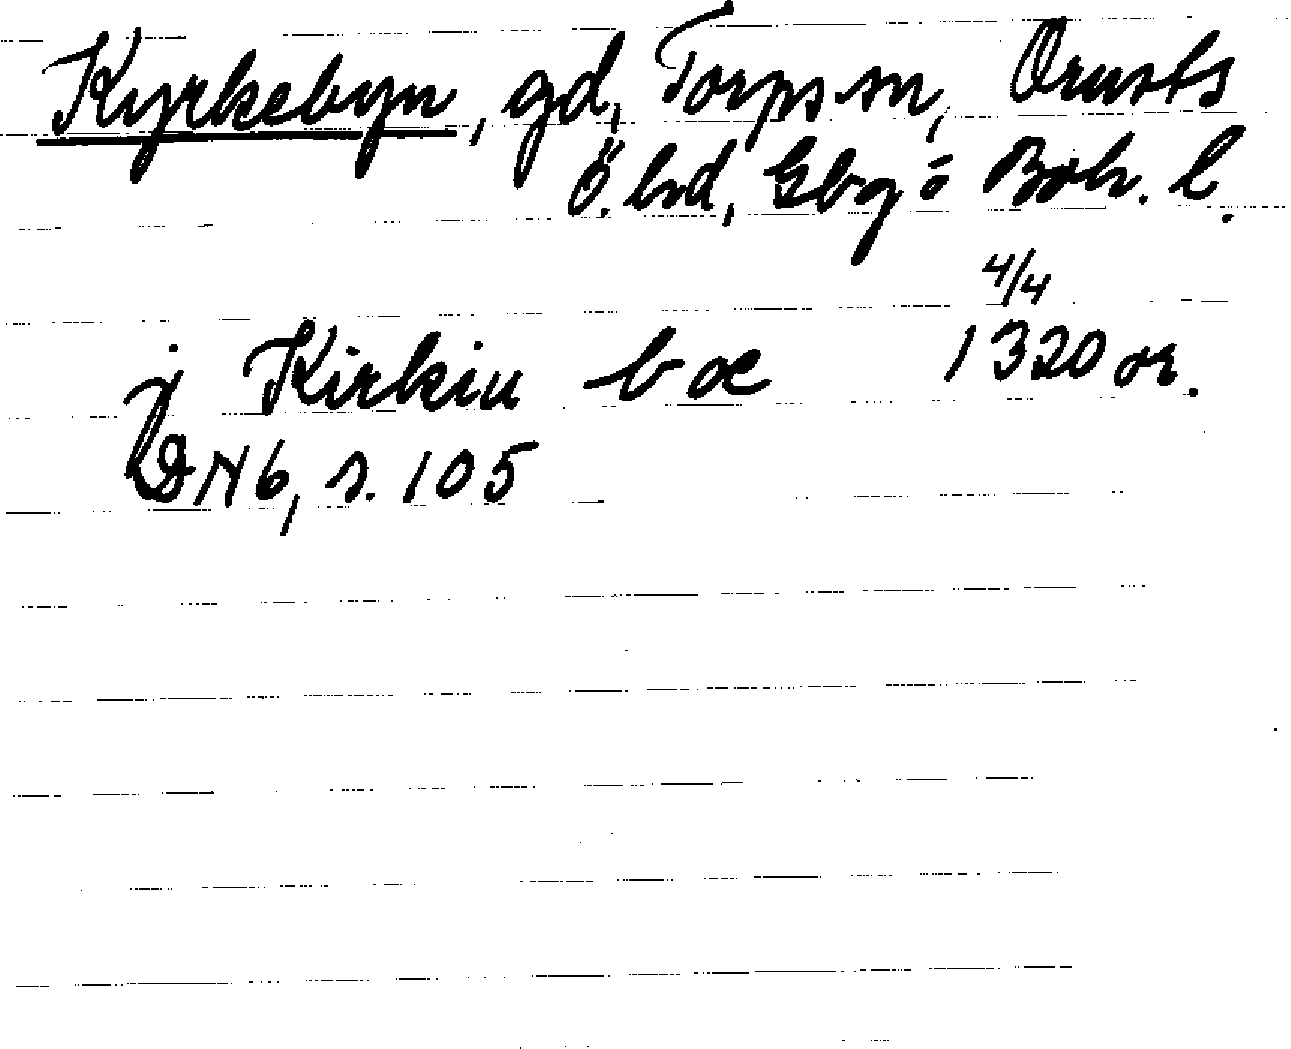 Kyrkebyn, gd, Torps sn, Orusts
Ö. hd, Gbg o Boh. l.
4/4
j Kirkiu bœ 1320 or.
DN 6, s. 105